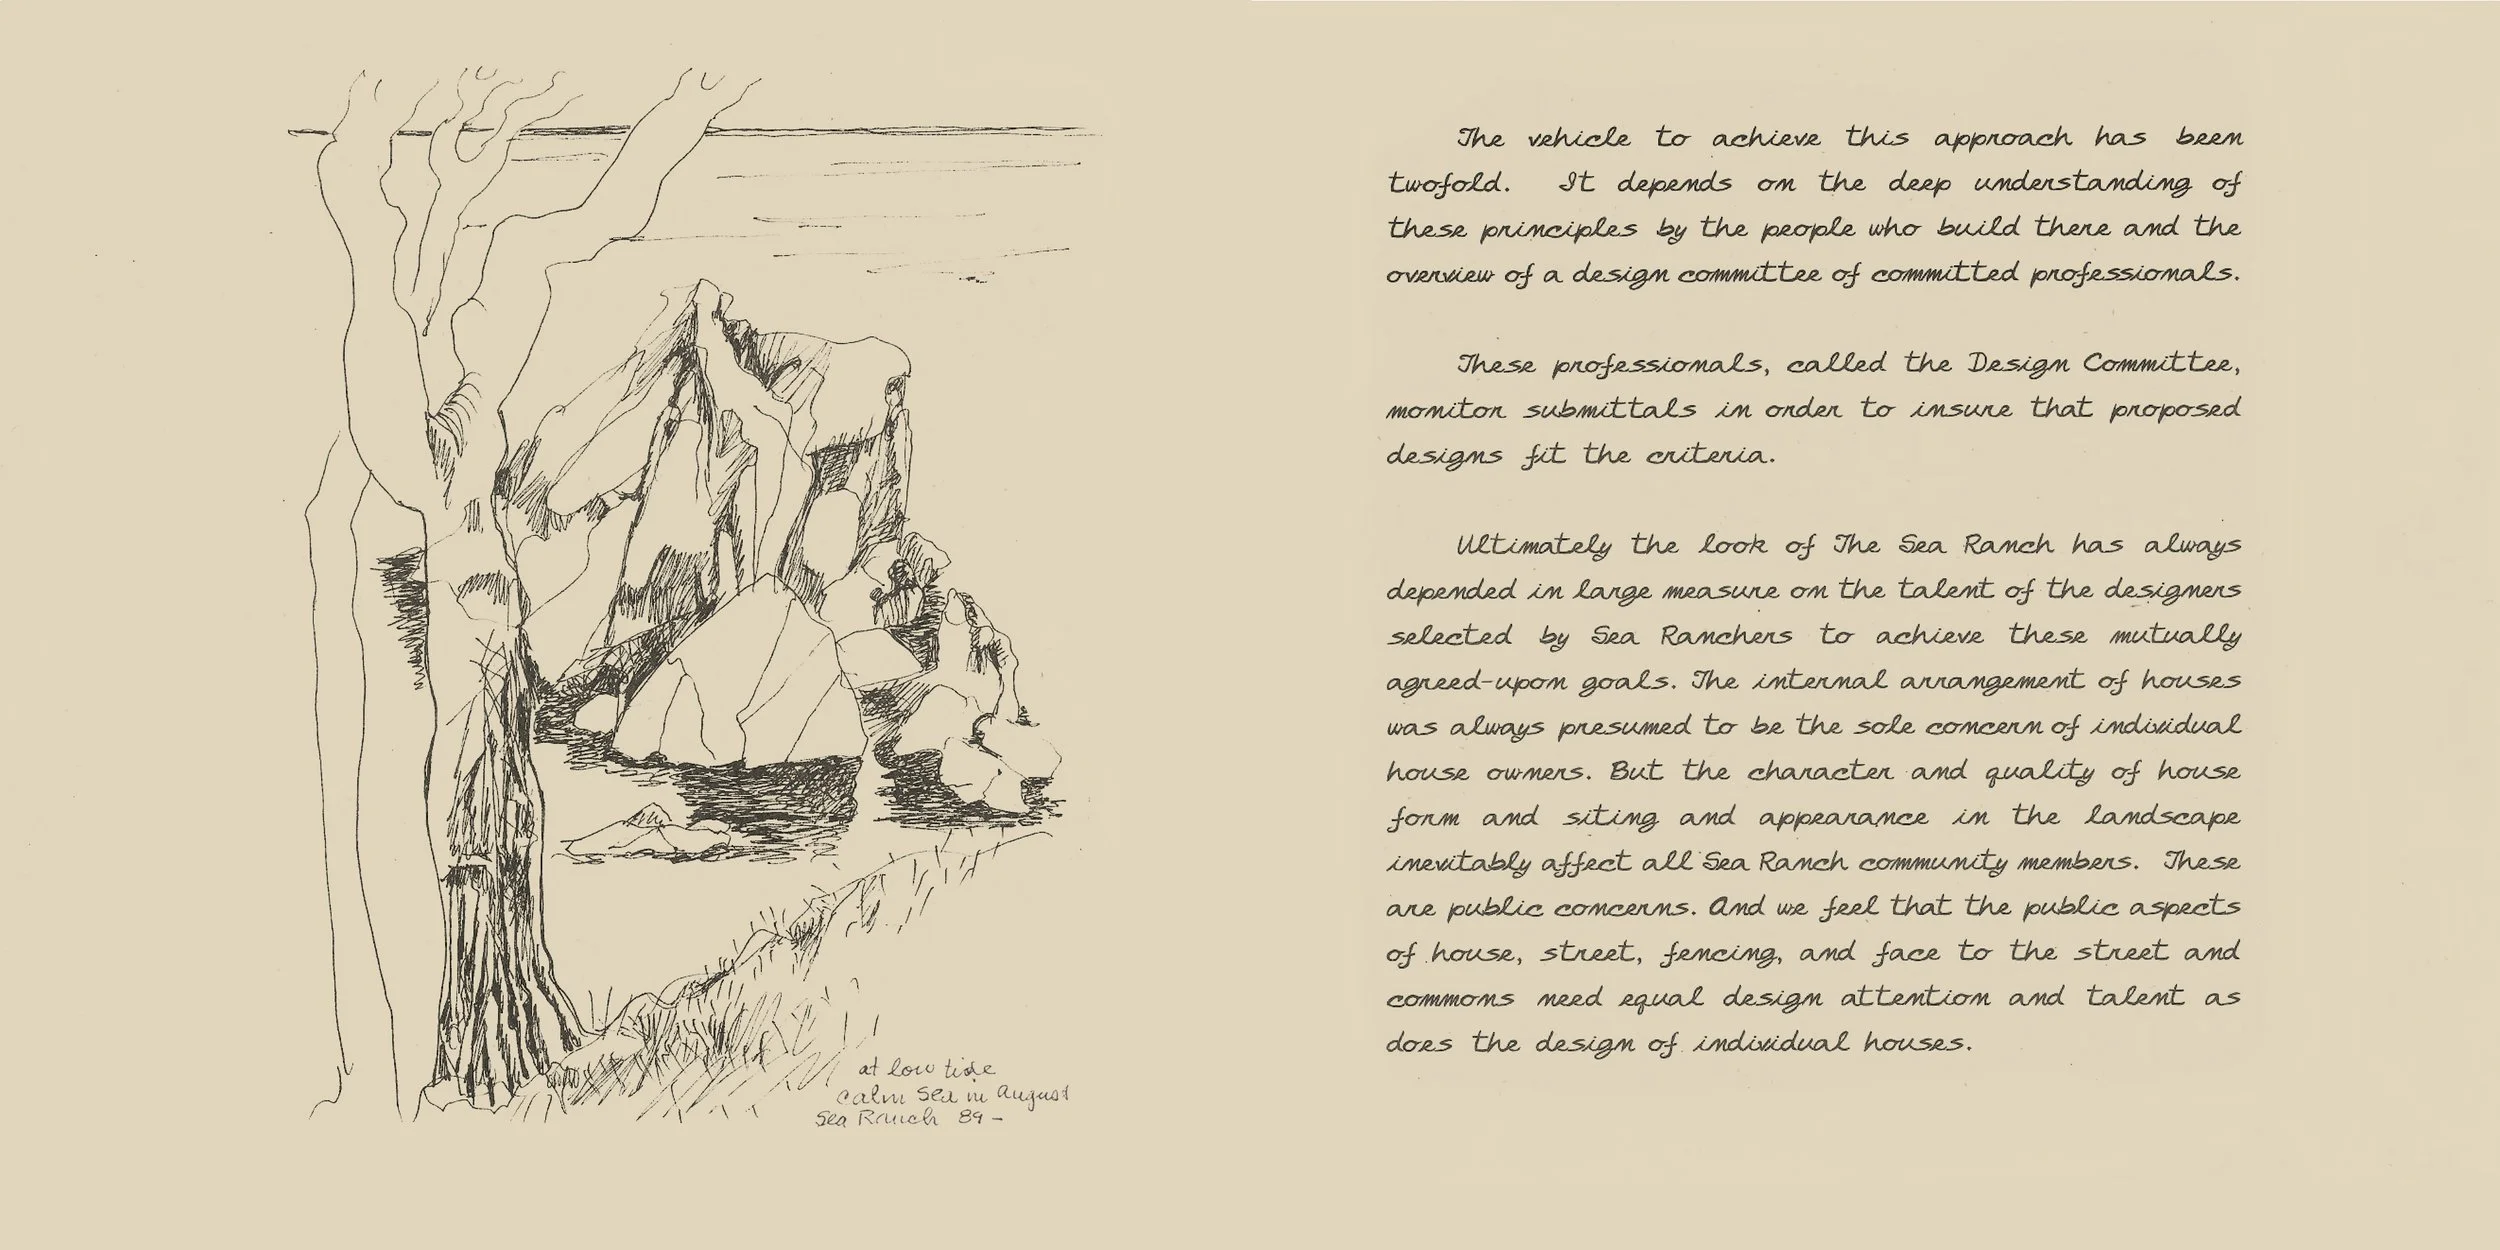 at low tide
calm sea in August
Sea Ranch 89 –
The vehicle to achieve this approach has been
twofold. It depends on the deep understanding of
these principles by the people who build there and the
overview of a design committee of committed professionals.
These professionals, called the Design Committee,
monitor submittals in order to insure that proposed
designs fit the criteria.
Ultimately the look of The Sea Ranch has always
depended in large measure on the talent of the designers
selected by Sea Ranchers to achieve these mutually
agreed-upon goals. The internal arrangement of houses
was always presumed to be the sole concern of individual
house owners. But the character and quality of house
form and siting and appearance in the landscape
inevitably affect all Sea Ranch community members. These
are public concerns. And we feel that the public aspects
of house, street, fencing, and face to the street and
commons need equal design attention and talent as
does the design of individual houses.